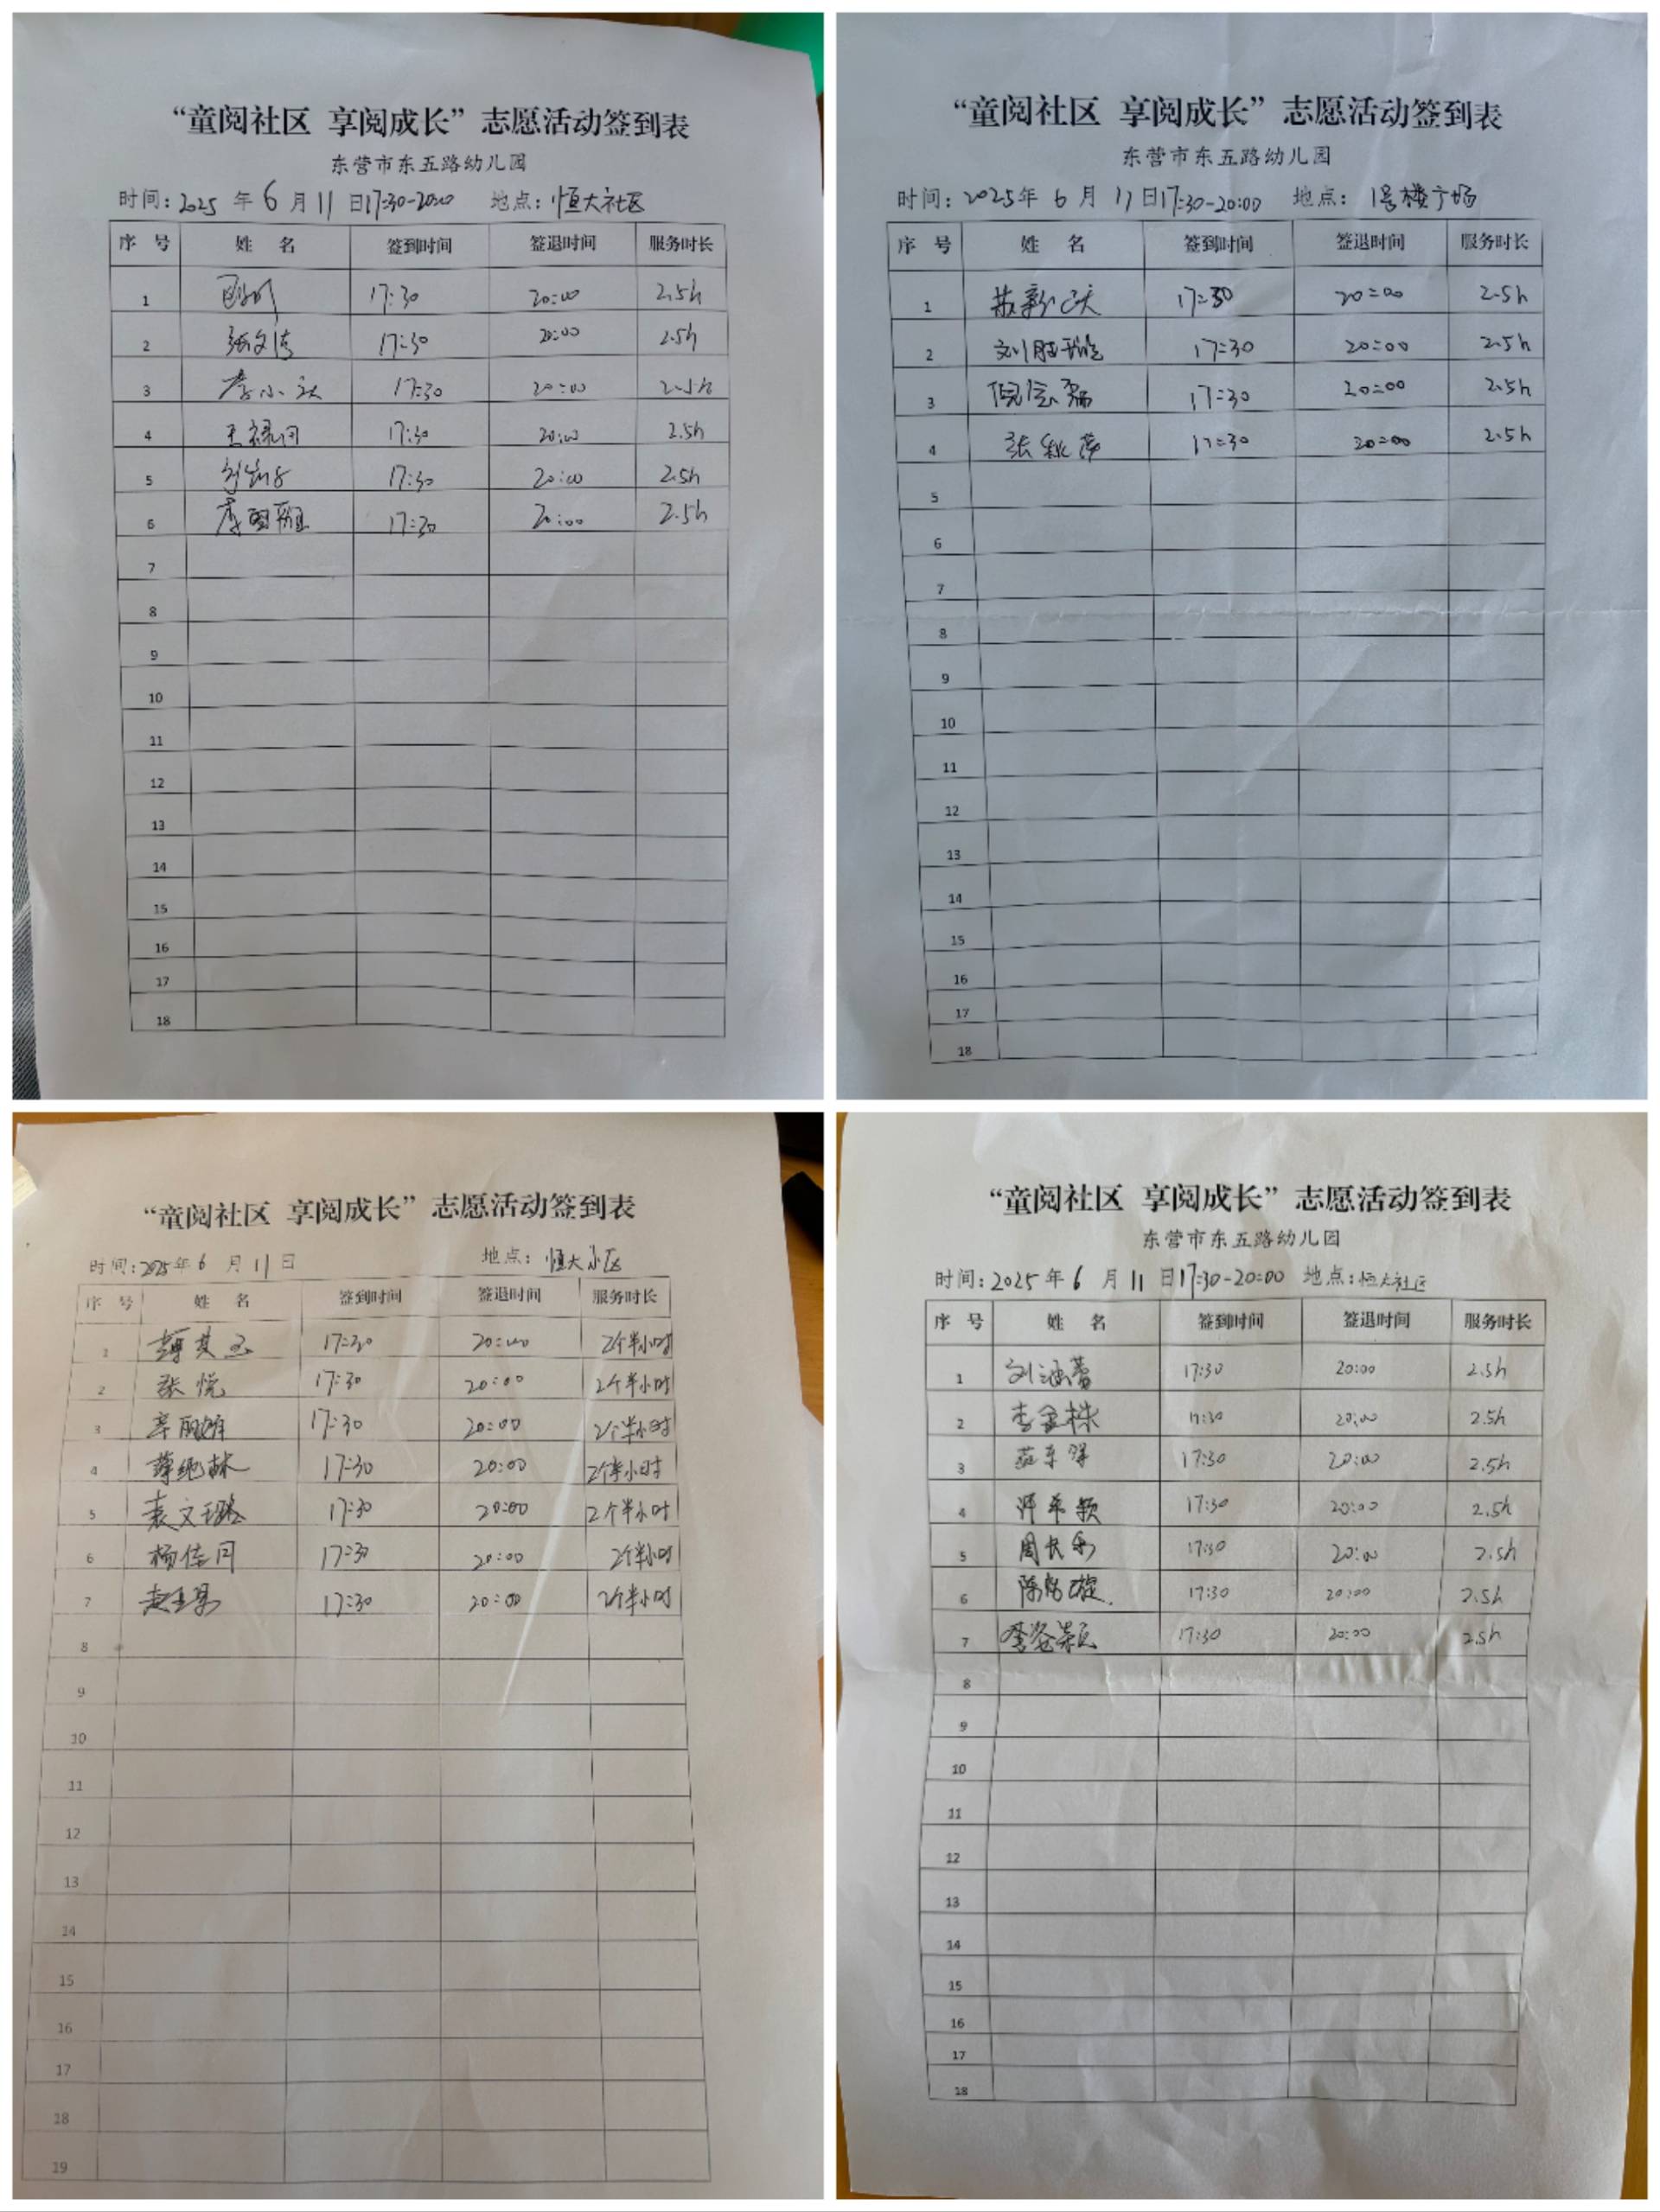 “童阅社区 享阅成长”志愿活动签到表
东营市东五路幼儿园
时间:2025年6月11日17:30-20:00 地点:恒大社区
序号 姓名 签到时间 签退时间 服务时长
1 17:30 20:00 2.5h
2 张文清 17:30 20:00 2.5h
3 李小 17:30 20:00 2.5h
4 王 17:30 20:00 2.5h
5 17:30 20:00 2.5h
6 17:30 20:00 2.5h
7
8
9
10
11
12
13
14
15
16
17
18
“童阅社区 享阅成长”志愿活动签到表
东营市东五路幼儿园
时间:2025年6月11日17:30-20:00 地点:1号楼广场
序号 姓名 签到时间 签退时间 服务时长
1 17:30 20:00 2.5h
2 刘 17:30 20:00 2.5h
3 倪 17:30 20:00 2.5h
4 张秋萍 17:30 20:00 2.5h
5
6
7
8
9
10
11
12
13
14
15
16
17
18
“童阅社区 享阅成长”志愿活动签到表
时间:2025年6月11日 地点:恒大小区
序号 姓名 签到时间 签退时间 服务时长
1 薛其玉 17:30 20:00 2个半小时
2 张悦 17:30 20:00 2个半小时
3 17:30 20:00 2个半小时
4 薛艳林 17:30 20:00 2个半小时
5 袁文璐 17:30 20:00 2个半小时
6 杨佳同 17:30 20:00 2个半小时
7 17:30 20:00 2个半小时
8
9
10
11
12
13
14
15
16
17
18
19
“童阅社区 享阅成长”志愿活动签到表
东营市东五路幼儿园
时间:2025年6月11日17:30-20:00 地点:恒大社区
序号 姓名 签到时间 签退时间 服务时长
1 刘涵蕾 17:30 20:00 2.5h
2 李金株 17:30 20:00 2.5h
3 17:30 20:00 2.5h
4 17:30 20:00 2.5h
5 周长 17:30 20:00 2.5h
6 陈 17:30 20:00 2.5h
7 17:30 20:00 2.5h
8
9
10
11
12
13
14
15
16
17
18